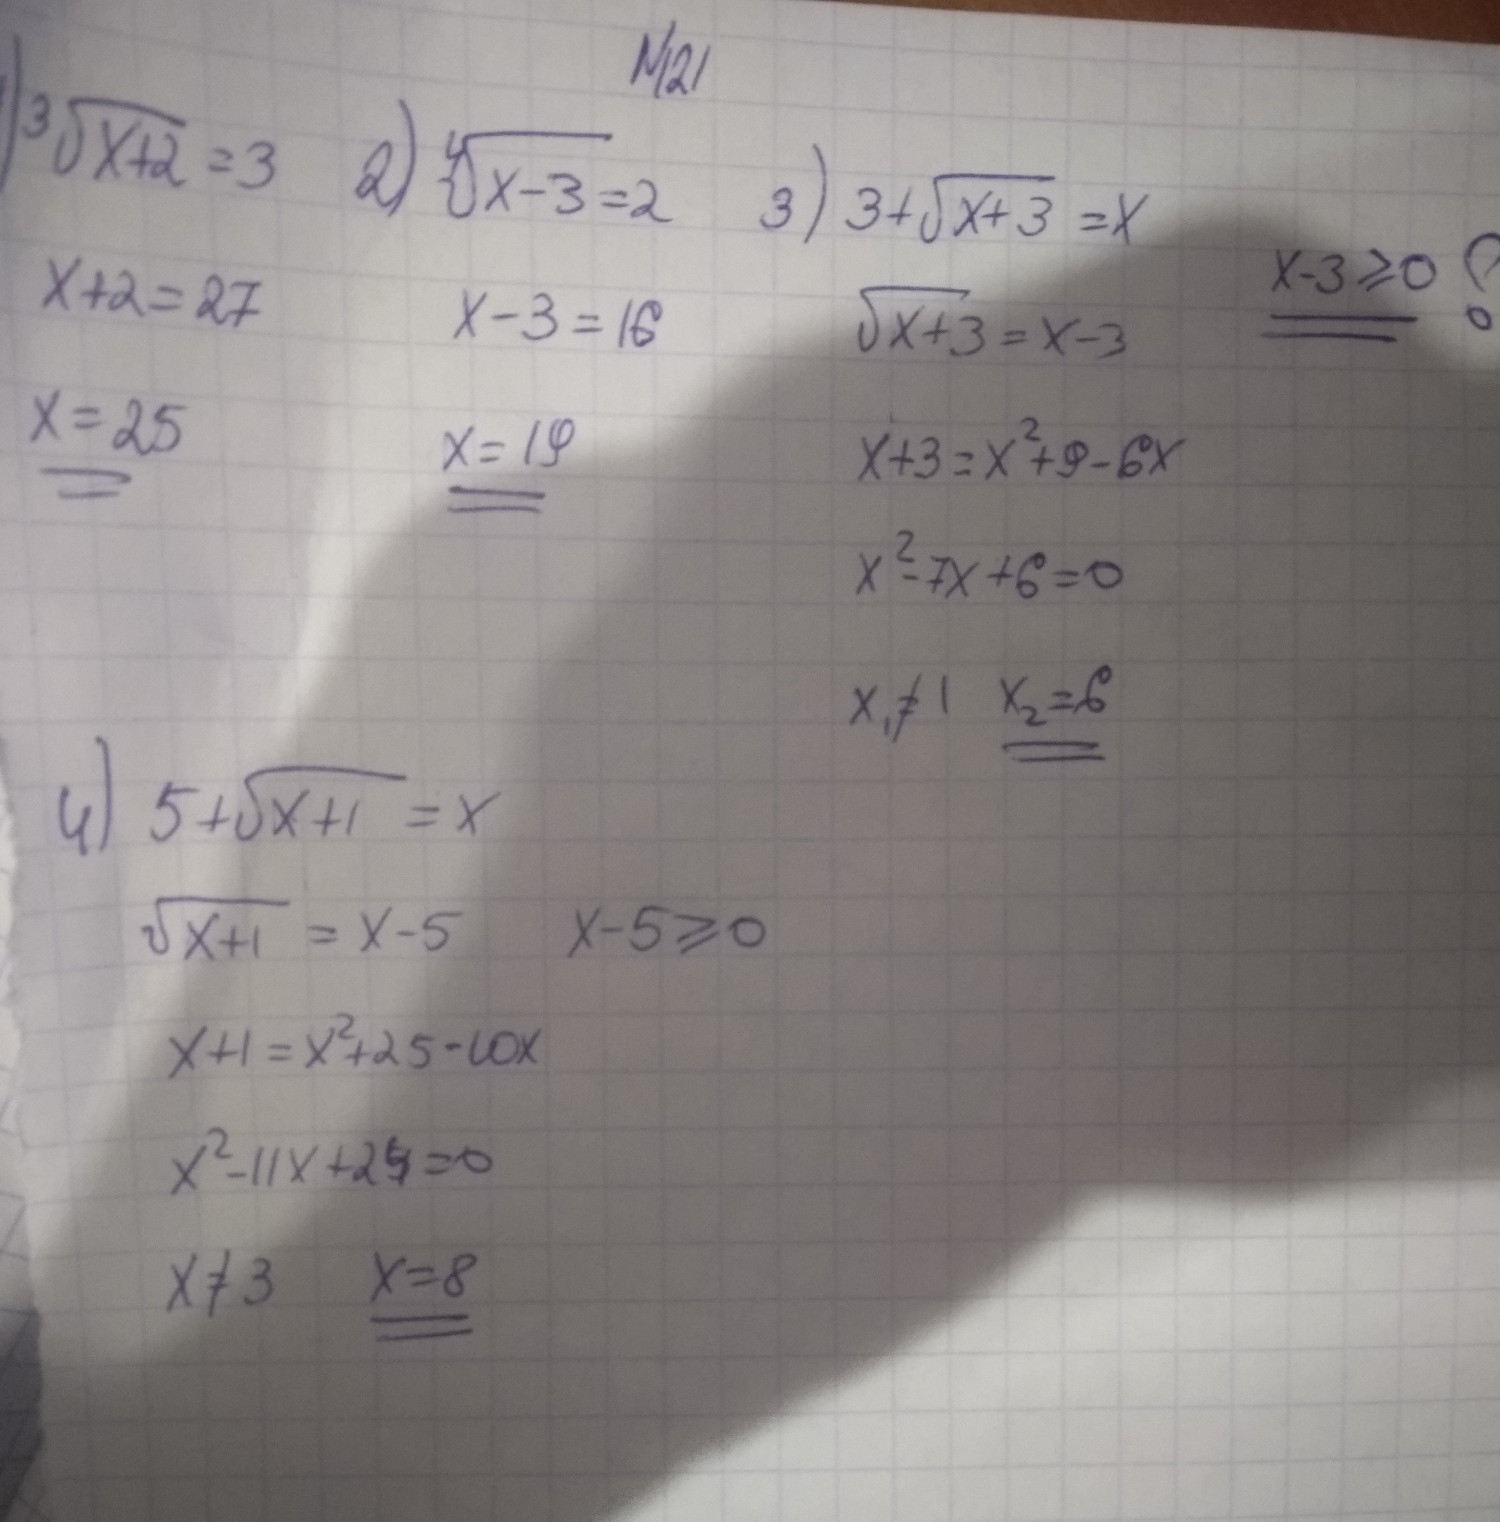 N121
1) ³√x+2 = 3
x+2=27
x=25
2) ⁴√x-3 = 2
x-3=16
x=19
3) 3+√x+3 = x
√x+3 = x-3
x-3⩾0 ?
x+3=x²+9-6x
x²-7x+6=0
x₁≠1 x₂=6
4) 5+√x+1 = x
√x+1 = x-5 x-5⩾0
x+1=x²+25-10x
x²-11x+24=0
x≠3 x=8